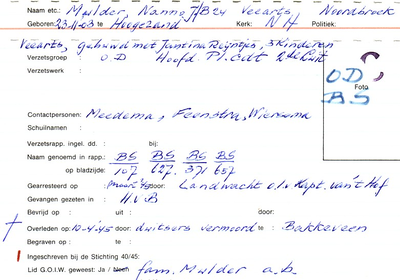 Naam etc.: Mulder, Nanno, J/B24 Veearts Noordbroek
Geboren: 23-11-03 te Hoogezand Kerk: NH Politiek:
Veearts, gehuwd met Jantina Duyntjes, 3 kinderen
Verzetsgroep : O.D Hoofd Pl. Cdt 2de Luit
Verzetswerk :
O.D
Foto
BS
Contactpersonen: Meedema, Feenstra, Wiersema
Schuilnaam :
Verzetsrapp. ingel. dd. : bij:
Naam genoemd in rapp.: BS BS BS BS
op bladzijde: 107 627. 371 657
Gearresteerd op : maart '45 door: Landwacht o.l.v Kapt. van 't Hof
Gevangen gezeten in : HvB
Bevrijd op : uit : door:
Overleden op: 10-4'45 door: duitsers vermoord te : Bakkeveen
Begraven op : te :
Ingeschreven bij de Stichting 40/45:
Lid G.O.I.W. geweest: Ja / Neen fam. Mulder a.b.